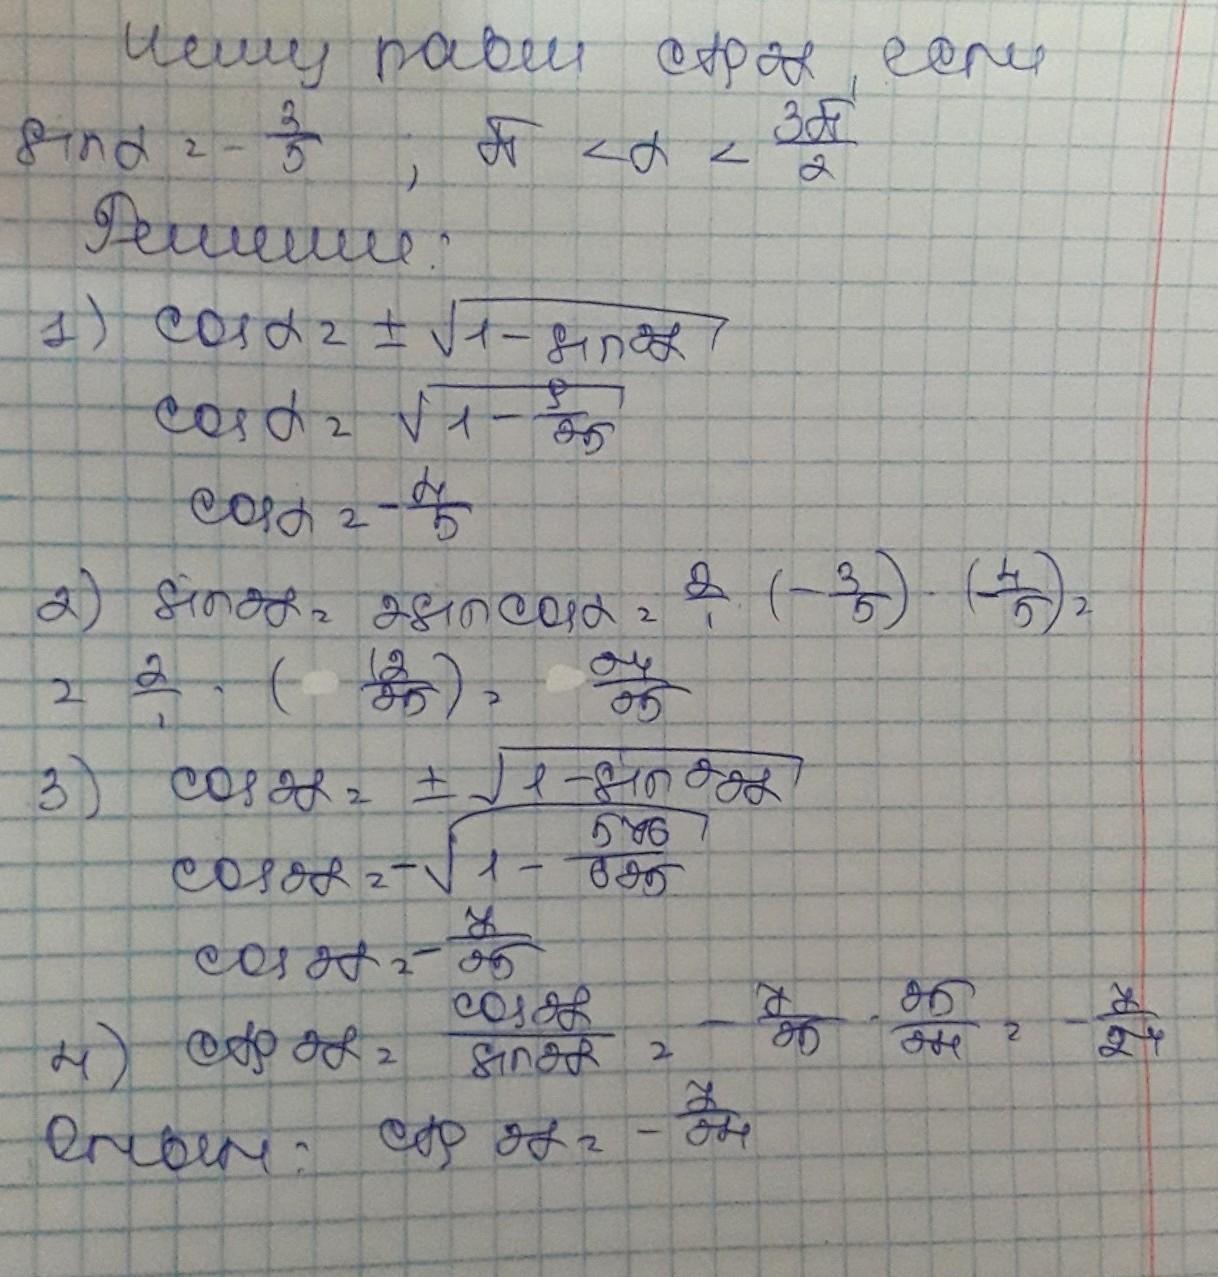 Чему равен ctg 2α, если
sin α = - 3/5 ; π < α < 3π/2
Решение:
1) cos α = ± √1 - sin 2α
cos α = √1 - 9/25
cos α = - 4/5
2) sin 2α = 2sin cos α = 2/1 · (- 3/5) · (- 4/5) =
= 2/1 · ( 12/25 ) = 24/25
3) cos 2α = ± √1 - sin 2 2α
cos 2α = - √1 - 576/625
cos 2α = - 7/25
4) ctg 2α = cos 2α/sin 2α = - 7/25 · 25/24 = - 7/24
Ответ: ctg 2α = - 7/24